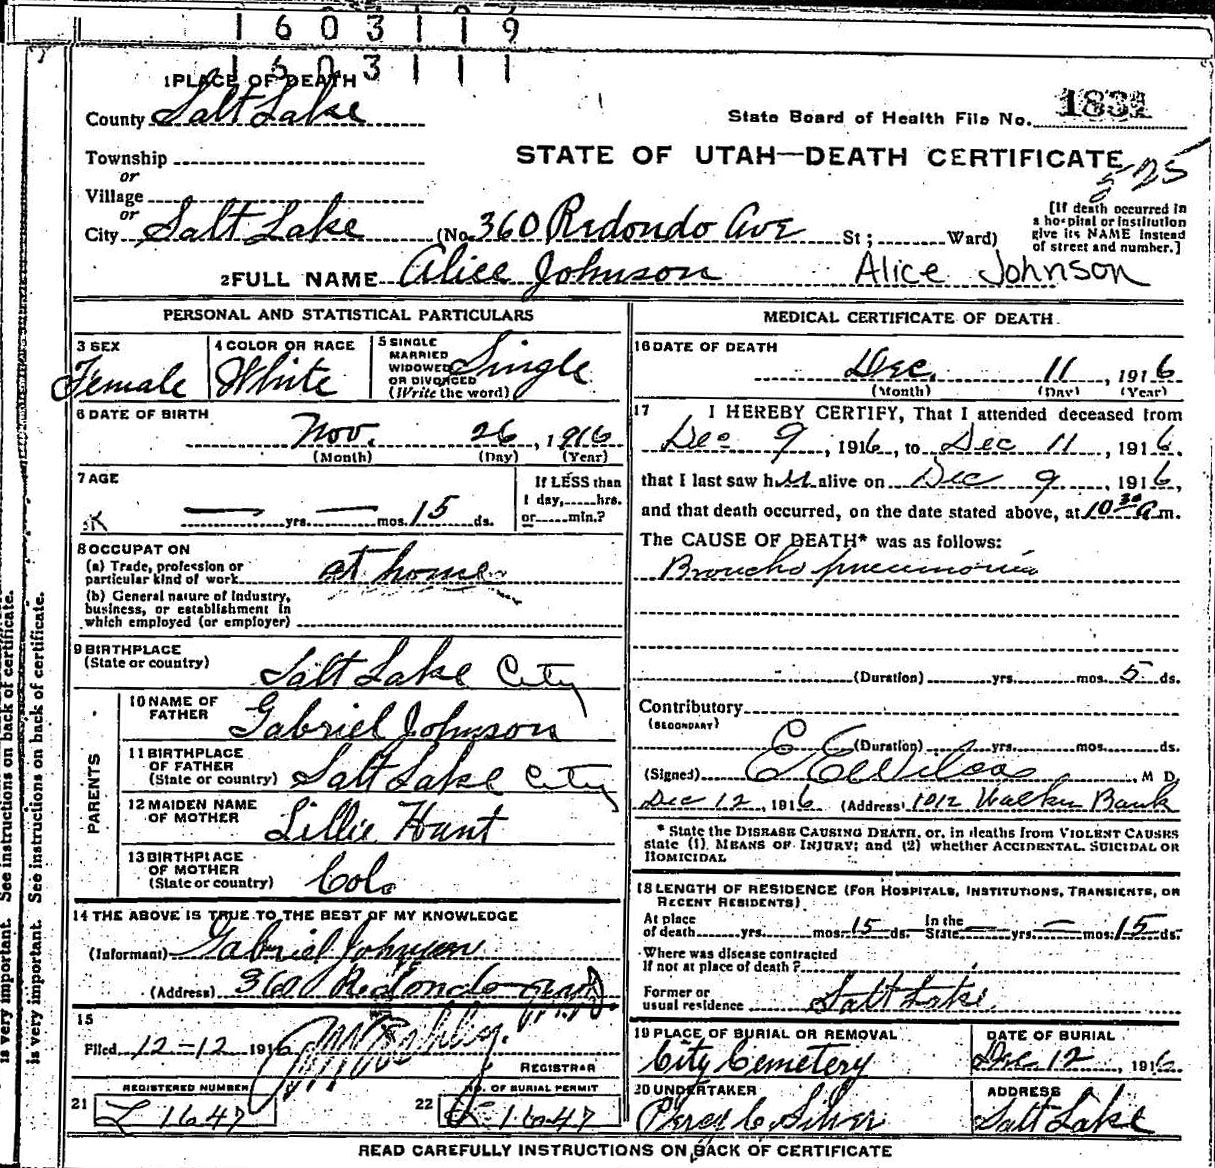 1603119
1603111
1 PLACE OF DEATH
County Salt Lake
State Board of Health File No. 1831
STATE OF UTAH—DEATH CERTIFICATE
Township
or
Village
or
City Salt Lake (No. 360 Redondo Ave St; Ward)
[If death occurred in
a hospital or institution
give its NAME instead
of street and number.]
2 FULL NAME Alice Johnson Alice Johnson
PERSONAL AND STATISTICAL PARTICULARS
3 SEX
Female
4 COLOR OR RACE
White
5 SINGLE
MARRIED
WIDOWED
OR DIVORCED
(Write the word)
Single
6 DATE OF BIRTH
Nov. 26, 1916
(Month) (Day) (Year)
7 AGE
— yrs. — mos. 15 ds.
If LESS than
1 day, hrs.
or min.?
8 OCCUPATION
(a) Trade, profession or
particular kind of work at home
(b) General nature of industry,
business, or establishment in
which employed (or employer)
9 BIRTHPLACE
(State or country) Salt Lake City
PARENTS
10 NAME OF
FATHER Gabriel Johnson
11 BIRTHPLACE
OF FATHER
(State or country) Salt Lake City
12 MAIDEN NAME
OF MOTHER Lillie Hunt
13 BIRTHPLACE
OF MOTHER
(State or country) Colo
14 THE ABOVE IS TRUE TO THE BEST OF MY KNOWLEDGE
(Informant) Gabriel Johnson
(Address) 360 Redondo
15
Filed 12-12 1916
REGISTRAR
REGISTERED NUMBER
21 L 1647
NO. OF BURIAL PERMIT
22 L 1647
MEDICAL CERTIFICATE OF DEATH
16 DATE OF DEATH
Dec. 11, 1916
(Month) (Day) (Year)
17 I HEREBY CERTIFY, That I attended deceased from
Dec 9, 1916, to Dec 11, 1916.
that I last saw her alive on Dec 9, 1916,
and that death occurred, on the date stated above, at 10 30 a m.
The CAUSE OF DEATH* was as follows:
Broncho pneumonia
(Duration) yrs. mos. 5 ds.
Contributory
(SECONDARY)
(Duration) yrs. mos. ds.
(Signed) E E Wilcox, M D.
Dec 12, 1916 (Address) 1012 Walker Bank
* State the DISEASE CAUSING DEATH, or, in deaths from VIOLENT CAUSES
state (1). MEANS OF INJURY; and (2) whether ACCIDENTAL, SUICIDAL OR
HOMICIDAL
18 LENGTH OF RESIDENCE (FOR HOSPITALS, INSTITUTIONS, TRANSIENTS, OR
RECENT RESIDENTS)
At place
of death yrs. mos. 15 ds. In the
State — yrs. — mos. 15 ds.
Where was disease contracted
if not at place of death?
Former or
usual residence Salt Lake
19 PLACE OF BURIAL OR REMOVAL
City Cemetery
DATE OF BURIAL
Dec 12, 1916
20 UNDERTAKER
Percy C Silver
ADDRESS
Salt Lake
READ CAREFULLY INSTRUCTIONS ON BACK OF CERTIFICATE
is very important. See instructions on back of certificate.
is very important. See instructions on back of certificate.